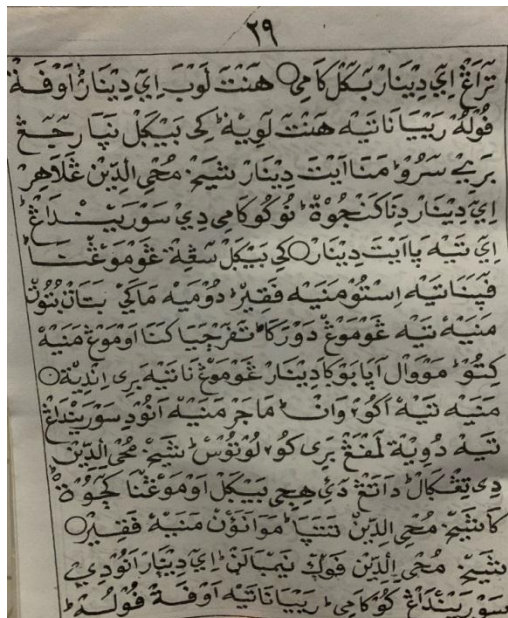 ٢٩
تَرَاڠْ اِيْ دِيْنَارْ بَكَلْ كَامِيْ ○ هَنْتَ لَوْبَ اِيْ دِيْنَارْ اَوْفَةْ
فُولُهْ رِيْيَانَاتِيَهْ هَنْتَ لَوِيَهْ كِيْ بَيْكَلْ نِيَا رِجِيْڠْ
بَرِيْيْ سَرُوْ مَنَا اَيْتَ دِيْنَارْ شَيْخْ مُحْيِ الدِّيْنْ ڠَلَاهِرْ
اِيْ دِيْنَارْ دِنَا كَنْجُوْهْ نُوْكُوْ كَامِيْ دِيْ سَوْرَيْنْدَاڠْ
اِيْ تِيَهْ پَا اَيْتَ دِيْنَارْ ○ كِيْ بَيْكَلْ سَڠَهْ ڠَوْمَوْڠْتَا
فَيْنَاتِيَهْ اِسْتُوْ مَنِيَهْ فَقِيْرْ دُوْمِيَهْ مَاكَيْ بَتَانْ بُتُوْنْ
مَنِيَهْ تِيَهْ ڠَوْمَوْڠْ دَوْرَكَا تَفَرْجَيَا كَنَا اَوْمَوْڠْ مَنِيَهْ
كِتُوْ مَوْوَالْ اَيَا بَوْكَا دِيْنَارْ ڠَوْمَوْڠْ نَاتِيَهْ بَرِيْ اِنْدِيَهْ ○
مَنِيَهْ تِيَهْ اَكُوْ وَانْ مَاجَرْ مَنِيَهْ اَنُوْدِ سَوْرَيْنْدَاڠْ
تِيَهْ دُوِيَةْ لَمْفَڠْ بَرِيْ كُوْ لَوْنُوْسْ شَيْخْ مُحْيِ الدِّيْنْ
دِيْ تِڠْكَالْ دَاتَڠْ دَيْ هِجِيْ بَيْكَلْ اَوْمَوْڠْنَا كَجُوْهْ
كَا شَيْخْ مُحْيِ الدِّيْنْ تَتَپَا مَوَانَوْنْ مَنِيَهْ فَقِيْرْ ○
شَيْخْ مُحْيِ الدِّيْنْ فَوْكْ نِيْمْبَالَنْ اِيْ دِيْنَارْ اَنُوْدِيْ
سَوْرَيْنْدَاڠْ كُوْ كَامِيْ رِيْيَانَاتِيَهْ اَوْفَةْ فُوْلُهْ